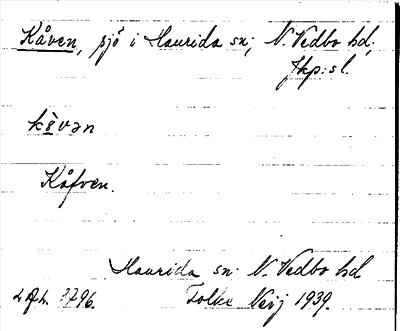 Kåven, sjö i Haurida sn; N. Vedbo hd;
Jkp:s l.
kåvən
Kåfven.
Haurida sn. N. Vedbo hd
Folke 1939.